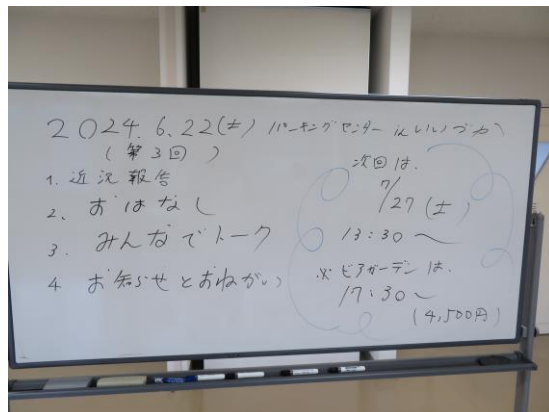 2024.6.22(土) パーキングセンター in いいづか
(第3回)
1. 近況報告
2. おはなし
3. みんなでトーク
4 お知らせとおねがい
次回は、
7/27 (土)
13:30〜
※ビアガーデンは、
17:30〜
(4,500円)